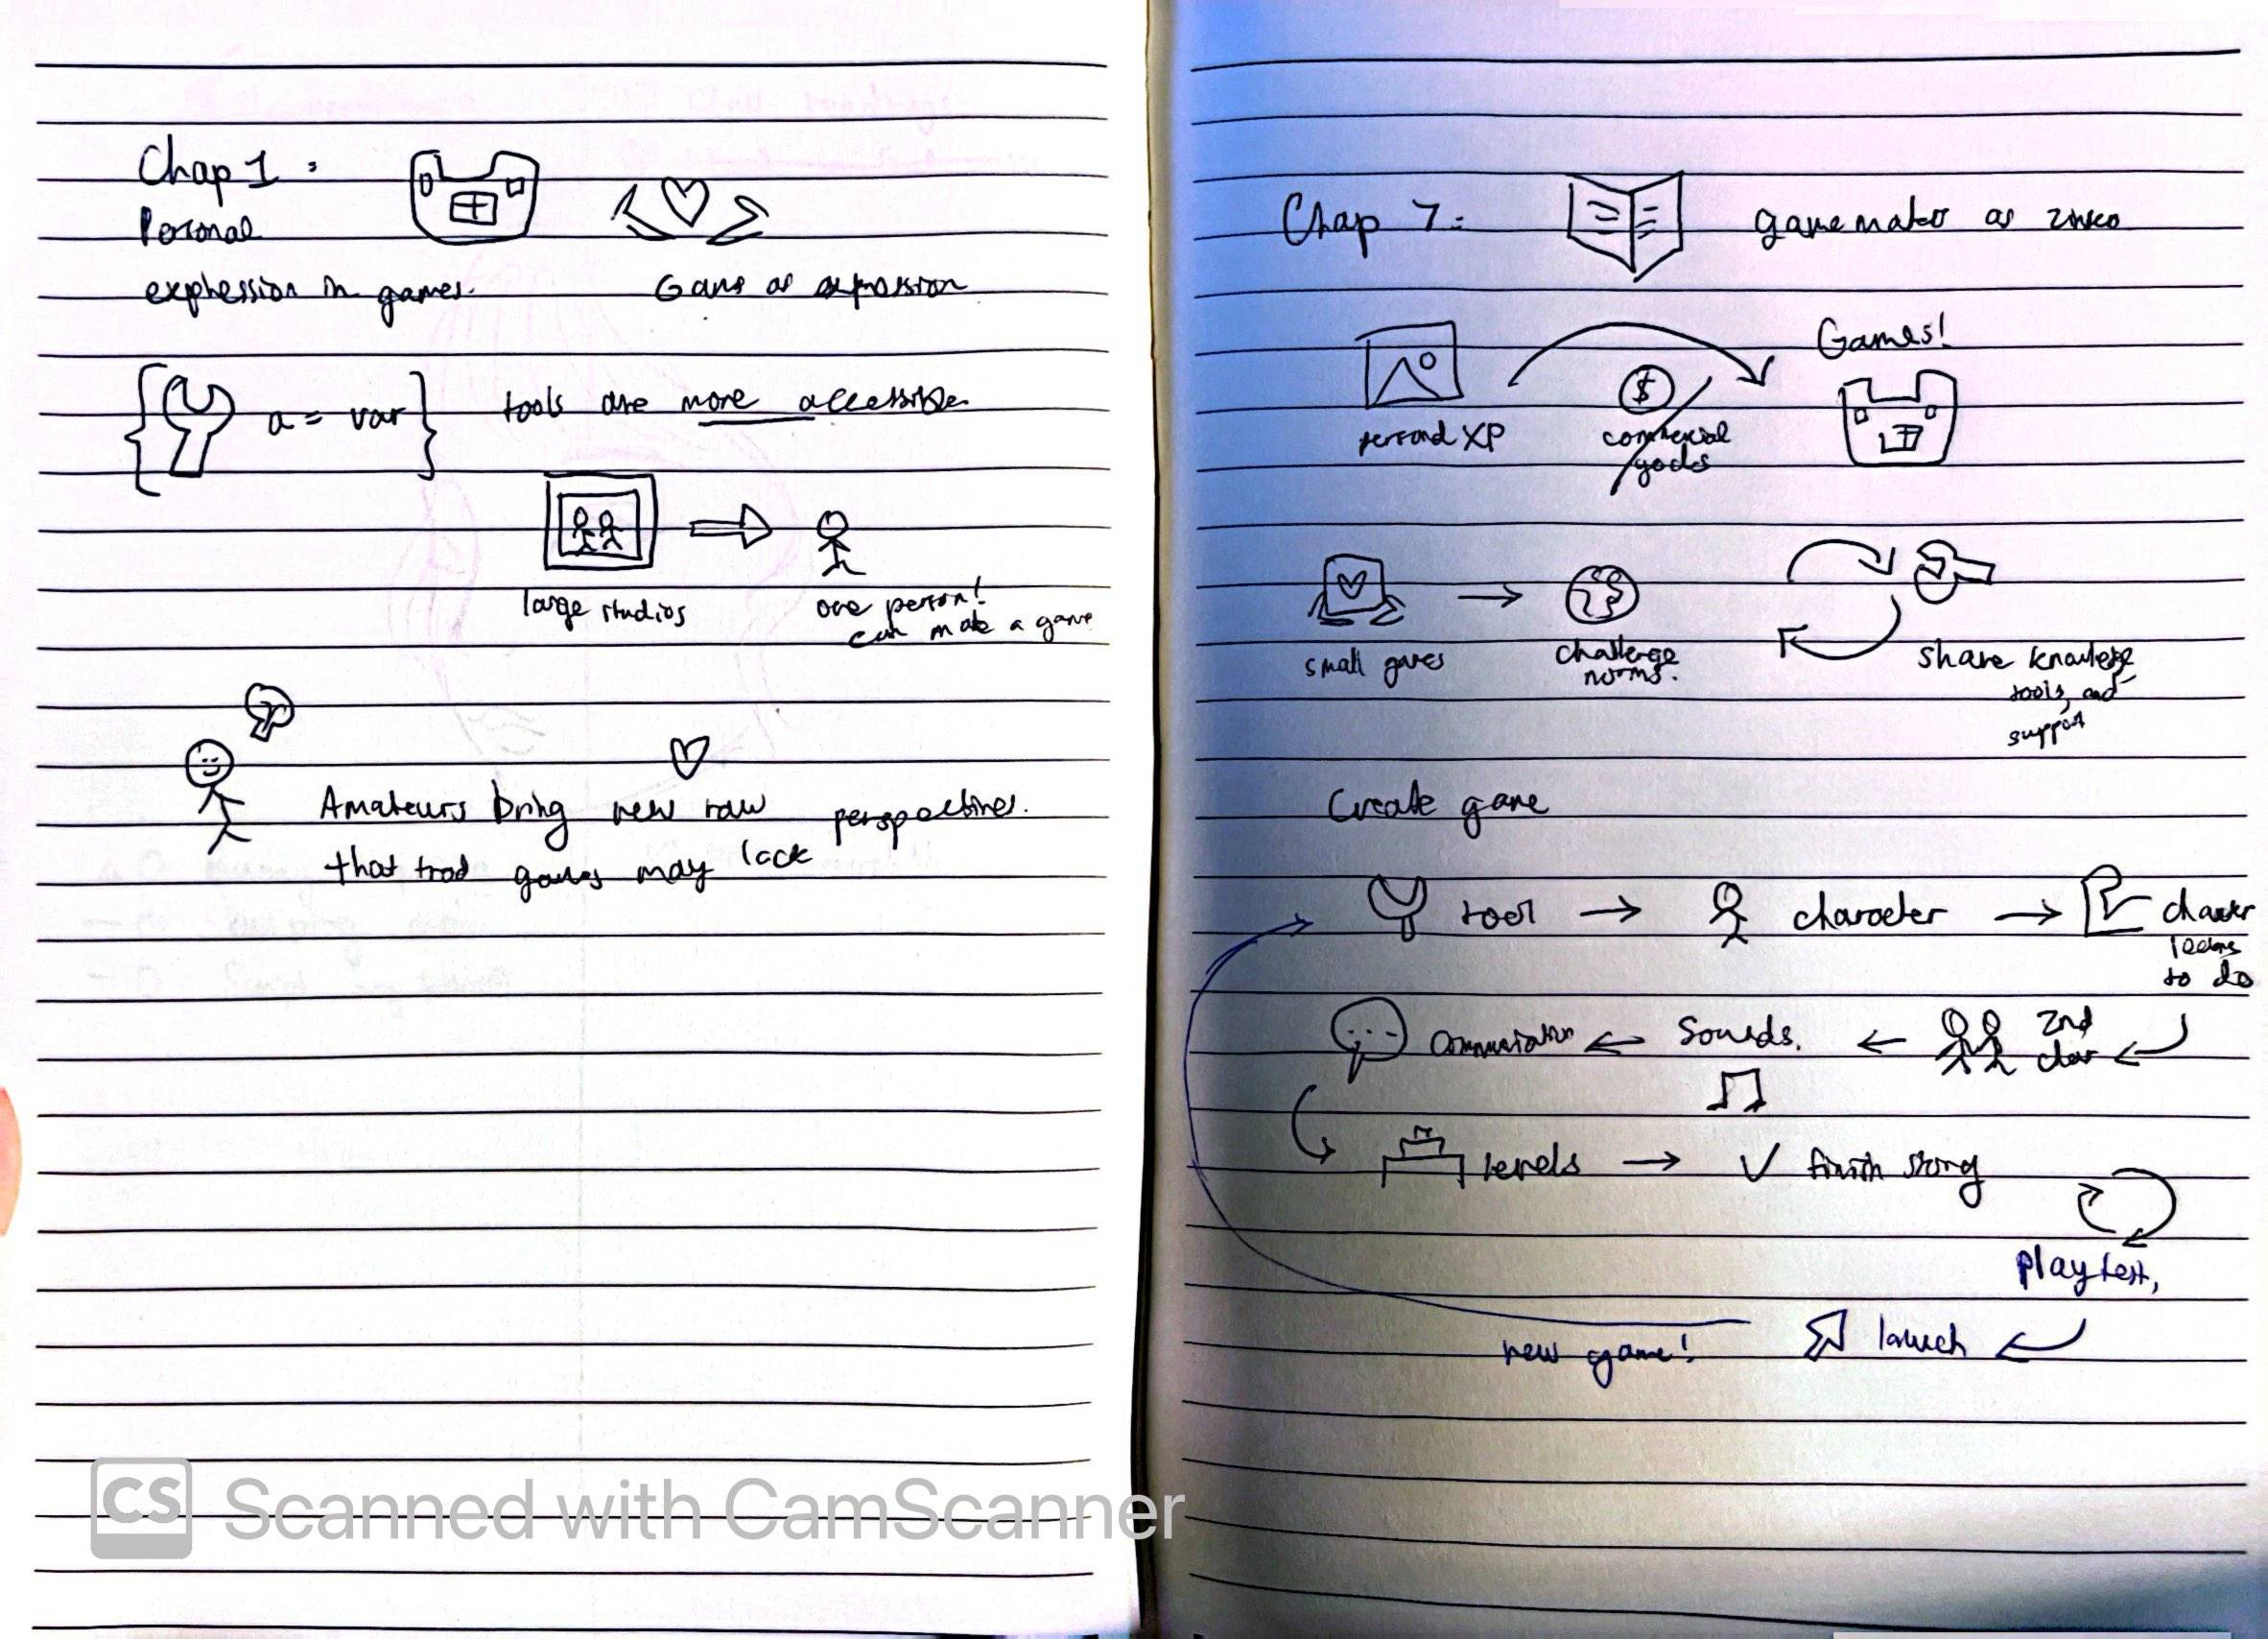 Chap 1 :
Personal
expression in games.
Game as expression
a = var
tools are more accessible
large studios
one person!
can make a game
Amateurs bring new raw perspectives.
that trad games may lack
Chap 7:
gamemaker as
Games!
personal XP
commercial
goods
small games
challenge
norms.
share knowledge
tools, and
support
Create game
tool
character
to do
2nd
char
Sounds.
levels
finish strong
playtest,
launch
new game!
CS Scanned with CamScanner